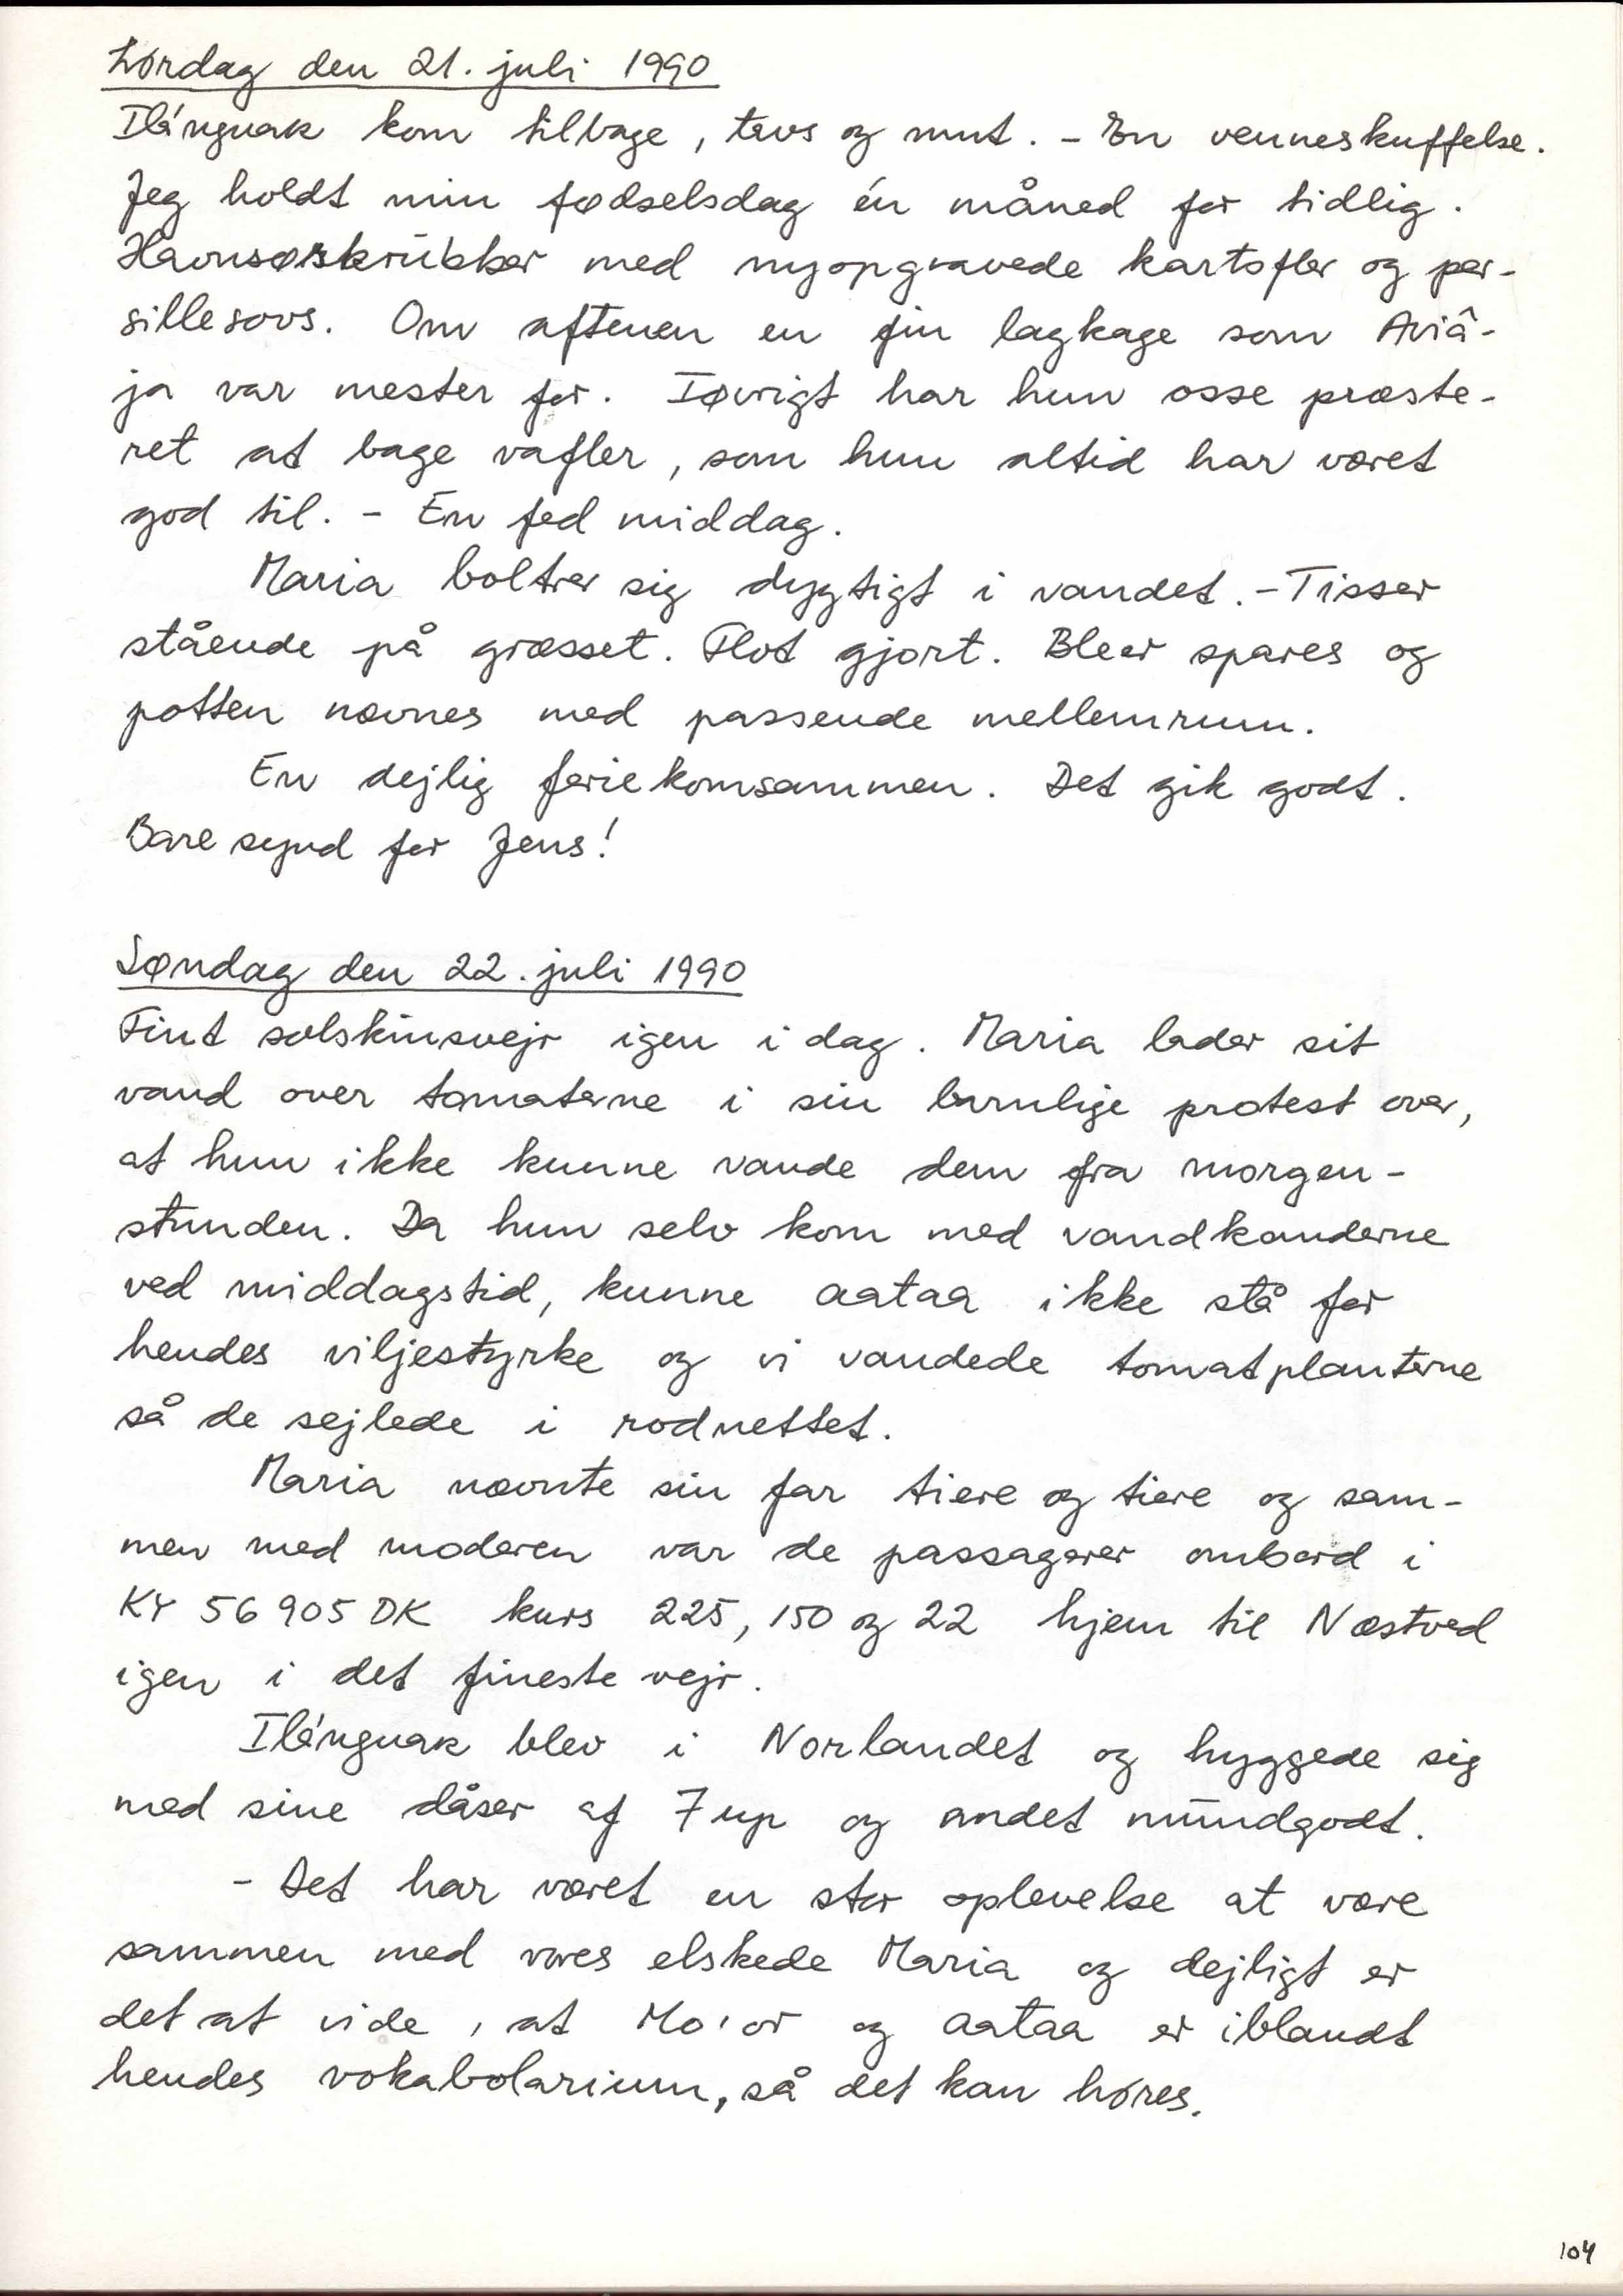 Lørdag den 21. juli 1990
Ilánguak kom tilbage, tavs og mut. - En venneskuffelse.
Jeg holdt min fødselsdag én måned for tidlig.
Havnsørskrubber med nyopgravede kartofler og per-
sillesovs. Om aftenen en fin lagkage som Aviâ-
ja var mester for. Iøvrigt har hun osse præste-
ret at bage vafler, som hun altid har været
god til. - En fed middag.
Maria boltrer sig dygtigt i vandet. - Tisser
stående på græsset. Flot gjort. Bleer spares og
potten nævnes med passende mellemrum.
En dejlig feriekomsammen. Det gik godt.
Bare synd for Jens!
Søndag den 22. juli 1990
Fint solskinsvejr igen i dag. Maria lader sit
vand over tomaterne i sin barnlige protest over,
at hun ikke kunne vande dem fra morgen-
stunden. Da hun selv kom med vandkanderne
ved middagstid, kunne aataa ikke stå for
hendes viljestyrke og vi vandede tomatplanterne
så de sejlede i rodnettet.
Maria nævnte sin far tiere og tiere og sam-
men med moderen var de passagerer ombord i
KY 56 905 DK kurs 225, 150 og 22 hjem til Næstved
igen i det fineste vejr.
Ilánguak blev i Norlandet og hyggede sig
med sine dåser af 7up og andet mundgodt.
- Det har været en stor oplevelse at være
sammen med vores elskede Maria og dejligt er
det at vide, at Mo'or og aataa er iblandt
hendes vokabolarium, så det kan høres.
104